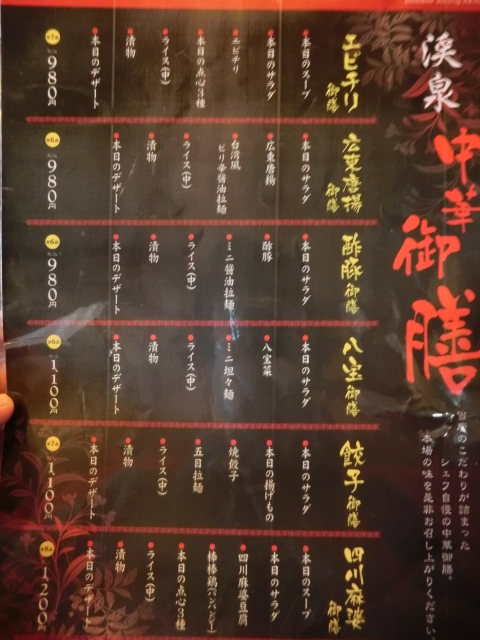 渓泉
中華御膳
当店のこだわりが詰まった
シェフ自慢の中華御膳。
本場の味を是非お召し上がりください
エビチリ御膳
本日のスープ
本日のサラダ
エビチリ
本日の点心3種
ライス(中)
漬物
本日のデザート
全7品
980円
広東唐揚御膳
本日のサラダ
広東唐揚
台湾風
ピリ辛醤油拉麺
ライス(中)
漬物
本日のデザート
全6品
980円
酢豚御膳
本日のサラダ
酢豚
ミニ醤油拉麺
ライス(中)
漬物
本日のデザート
全6品
980円
八宝御膳
本日のサラダ
八宝菜
ミニ坦々麺
ライス(中)
漬物
本日のデザート
全6品
1,100円
餃子御膳
本日のサラダ
本日の揚げもの
焼餃子
五目拉麺
ライス(中)
漬物
本日のデザート
全7品
1,100円
四川麻婆御膳
本日のスープ
本日のサラダ
四川麻婆豆腐
棒棒鶏(バンバンジー)
本日の点心3種
ライス(中)
漬物
本日のデザート
全8品
1,200円